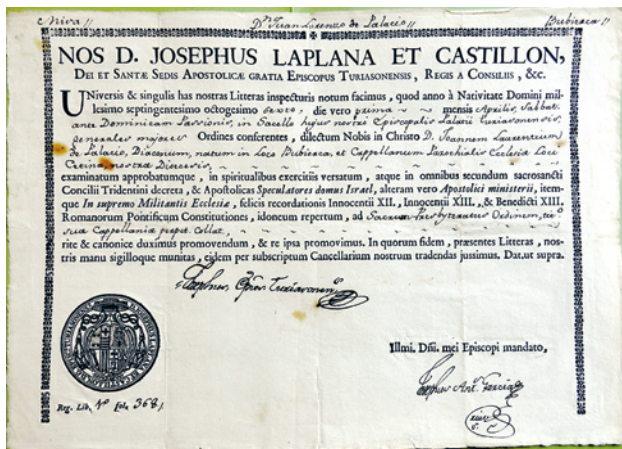 Niva // Dn. Juan Lorenzo de Palacio // Bubierca //
NOS D. JOSEPHUS LAPLANA ET CASTILLON,
DEI ET SANTÆ SEDIS APOSTOLICÆ GRATIA EPISCOPUS TURIASONENSIS, REGIS A CONSILIIS, &c.
UNiversis & singulis has nostras Litteras inspecturis notum facimus, quod anno à Nativitate Domini mil-
lesimo septingentesimo octogesimo sexto, die vero prima mensis Aprilis, Sabbat.
ante Dominicam Passionis, in Sacello hujus nostri Episcopalis Palatii Turiasonensis,
generales majores Ordines conferentes, dilectum Nobis in Christo D. Joannem Laurentium
de Palacio, Diaconum, natum in Loco Bubierca, et Cappellanum Parochialis Ecclesiæ Loci
nostræ Diœcesis,
examinatum approbatumque, in spiritualibus exercitiis versatum, atque in omnibus secundum sacrosancti
Concilii Tridentini decreta, & Apostolicas Speculatores domus Israel, alteram vero Apostolici ministerii, item-
que In supremo Militantis Ecclesiæ, felicis recordationis Innocentii XII., Innocentii XIII., & Benedicti XIII.
Romanorum Pontificum Constitutiones, idoneum repertum, ad Sacrum Presbyteratus Ordinem,
suæ Cappellaniæ perpet. Collat.
rite & canonice duximus promovendum, & re ipsa promovimus. In quorum fidem, præsentes Litteras, nos-
tris manu sigilloque munitas, eidem per subscriptum Cancellarium nostrum tradendas jussimus. Dat. ut supra.
Josephus Epus Turiasonen
Illmi. Dñi. mei Episcopi mandato,
Josephus Ant.
Reg. Lib. 1º fol. 368